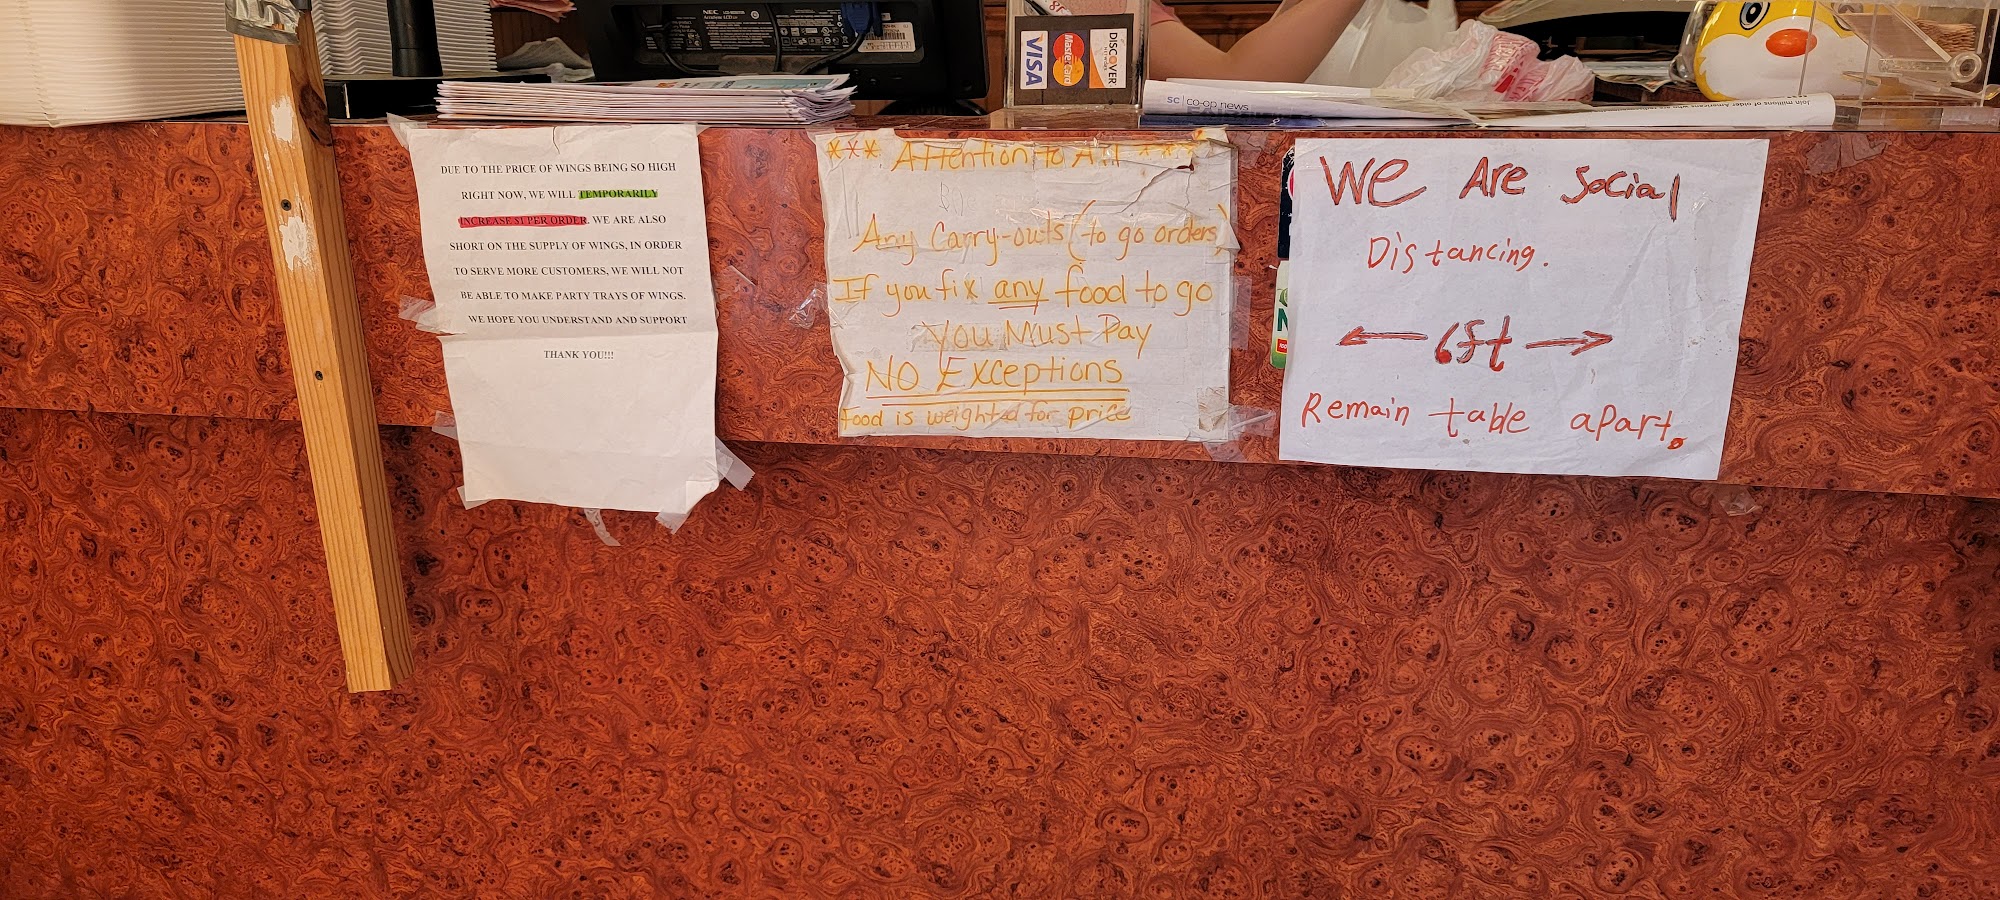 NEC
VISA
MasterCard
DISCOVER
sc | co-op news
DUE TO THE PRICE OF WINGS BEING SO HIGH
RIGHT NOW, WE WILL TEMPORARILY
INCREASE $1 PER ORDER. WE ARE ALSO
SHORT ON THE SUPPLY OF WINGS, IN ORDER
TO SERVE MORE CUSTOMERS, WE WILL NOT
BE ABLE TO MAKE PARTY TRAYS OF WINGS.
WE HOPE YOU UNDERSTAND AND SUPPORT
THANK YOU!!!
*** Attention to All ***
Any Carry-outs (to go orders)
If you fix any food to go
You Must Pay
NO Exceptions
food is weighted for price
We Are Social
Distancing.
6ft
Remain table apart.